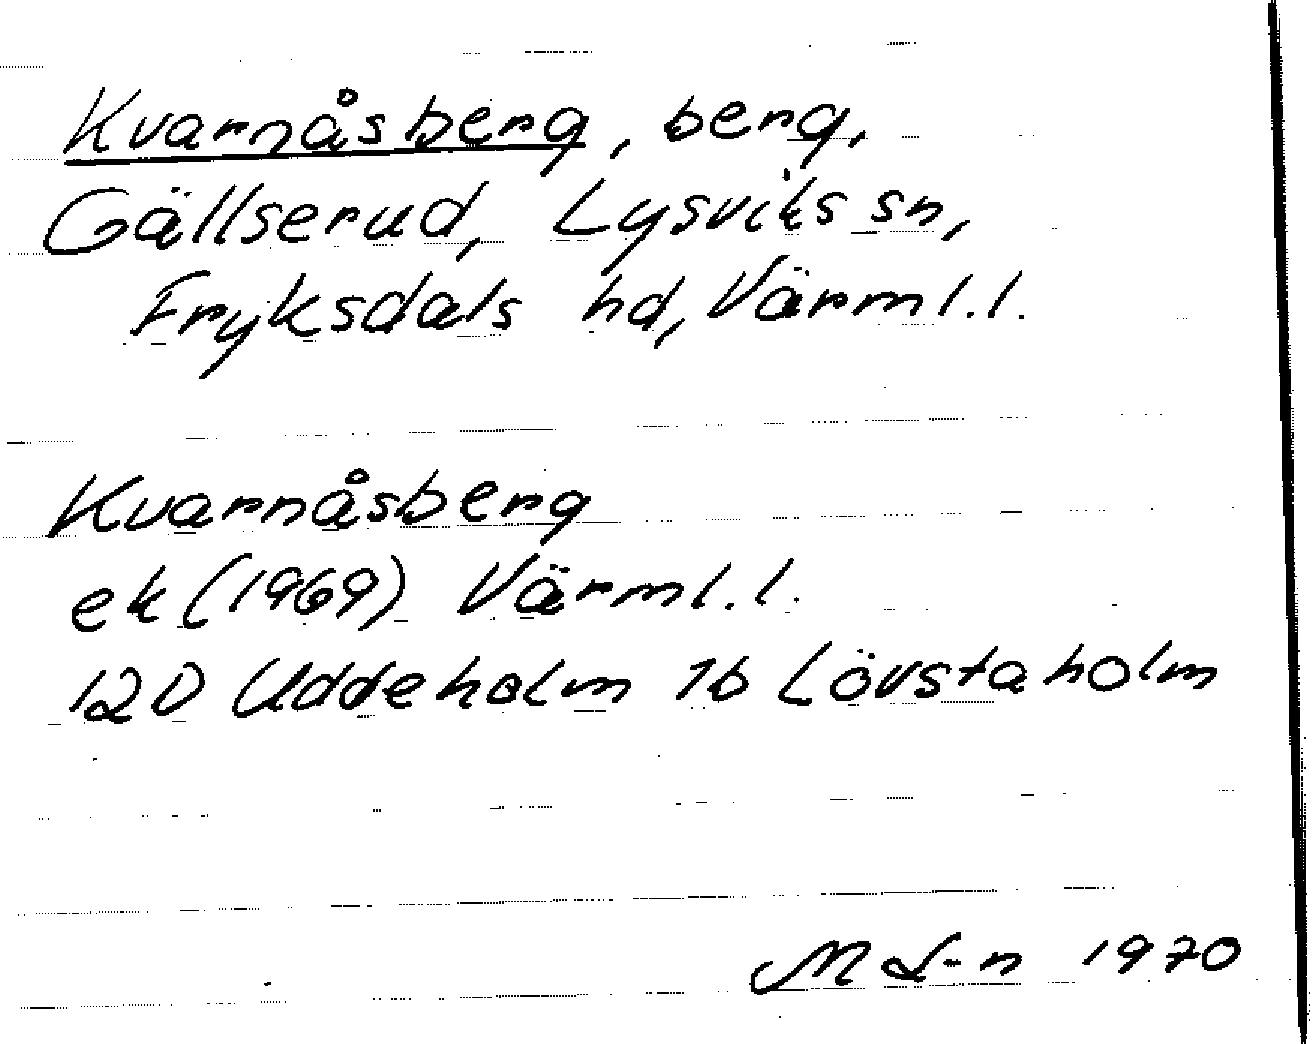 Kvarnåsberg, berg,
Gällserud, Lysviks sn,
Fryksdals hd, Värml.l.
Kvarnåsberg
ek (1969) Värml.l.
12D Uddeholm 1b Lövstaholm
M L-n 1970